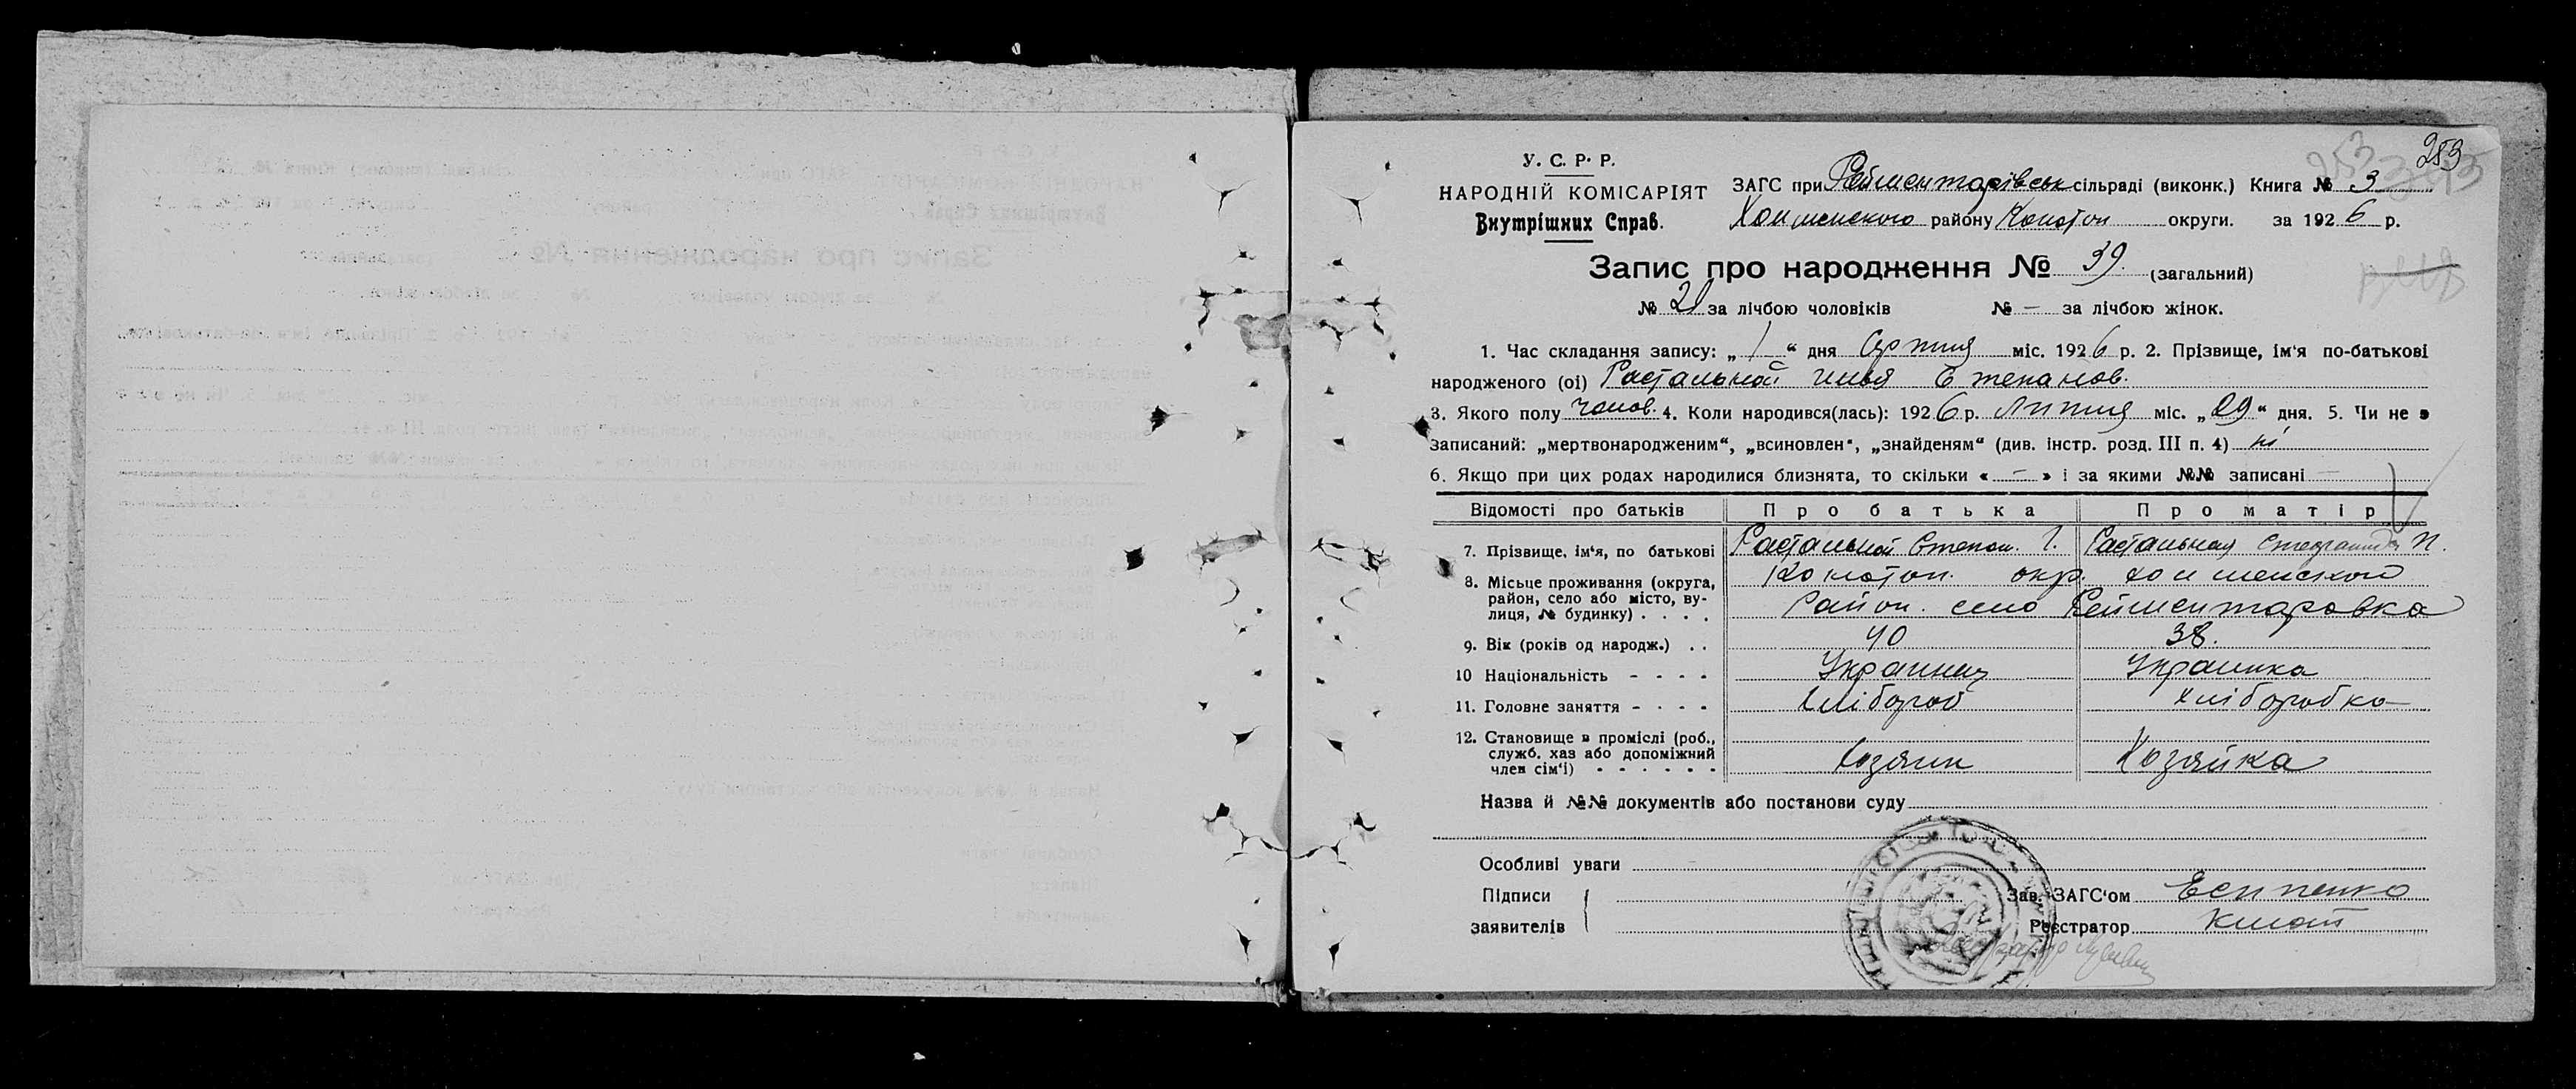 253
253
У. С. Р. Р.
НАРОДНІЙ КОМІСАРІЯТ
Внутрішних Справ.
ЗАГС при Рейментарівськ сільраді (виконк.) Книга № 3
Холменского району Конотоп округи. за 1926 р.
Запис про народження № 39. (загальний)
№ 21 за лічбою чоловіків № — за лічбою жінок.
1. Час складання запису: „ 1 “ дня Серпня міс. 1926 р. 2. Прізвище, ім'я по-батькові
народженого (ої) Растальной Илья Степанов.
3. Якого полу чолов. 4. Коли народився(лась): 1926 р. Липня міс. „ 29 “ дня. 5. Чи не є
записаний: „мертвонародженим“, „всиновлен“, „знайденям“ (див. інстр. розд. III п. 4) ні
6. Якщо при цих родах народилися близнята, то скільки « — » і за якими №№ записані —
Відомості про батьків Про батька Про матір
7. Прізвище, ім'я, по батькові Растальной Степан. Г. Растальная Степанида П.
8. Місьце проживання (округа, район, село або місто, вулиця, № будинку) . . . . Конотоп. окр. Холменской
Район. село Рейментаровка
9. Вік (років од народж.) . . 40 38.
10 Національність - - - - Украинец Украинка
11. Головне заняття - - - - Хлібороб Хліборобка
12. Становище в промислі (роб., служб. хаз або допоміжний член сім'ї) - - - - - - Хозяин Хозяйка
Назва й №№ документів або постанови суду
Особливі уваги
Підписи
заявителів
Зав. ЗАГС'ом Есипенко
Реєстратор Кмот